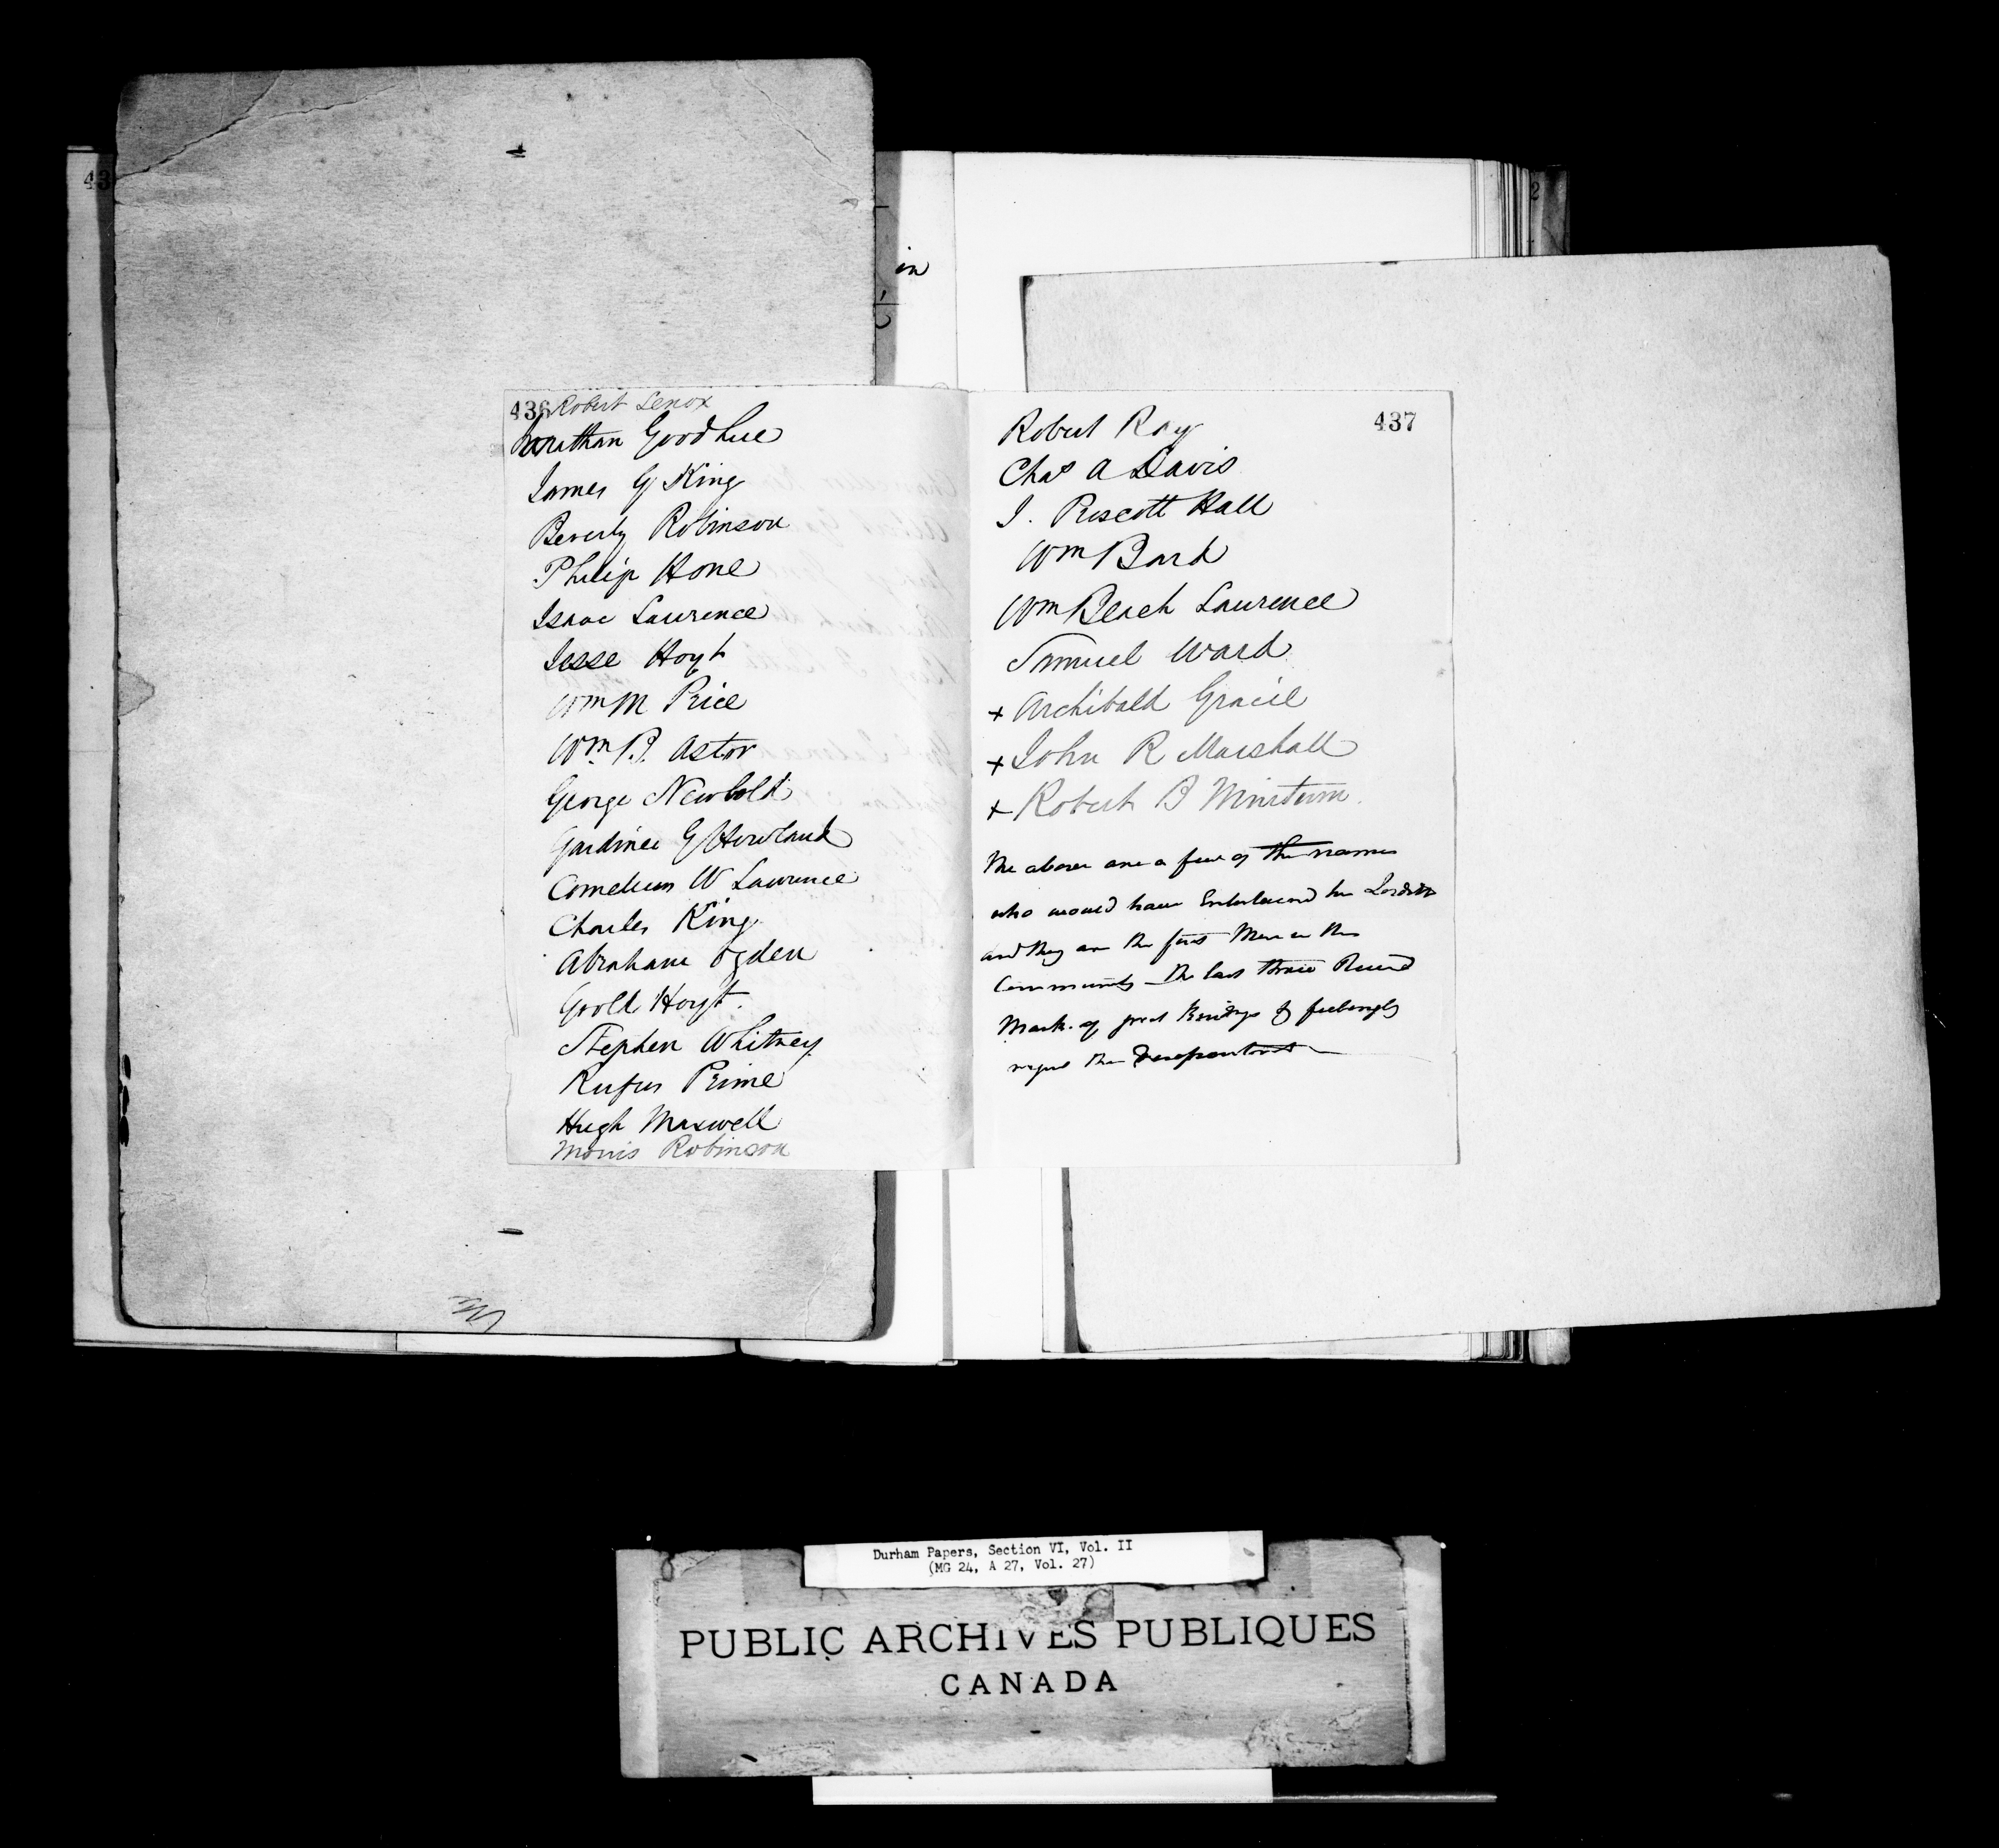 436
Robert Lenox
Jonathan Goodhue
James G King
Beverly Robinson
Philip Hone
Isaac Lawrence
Jesse Hoyt
Wm M Price
Wm B. Astor
George Newbold
Gardiner G Howland
Cornelius W Lawrence
Charles King
Abraham Ogden
Goold Hoyt.
Stephen Whitney
Rufus Prime
Hugh Maxwell
Morris Robinson
437
Robert Ray
Chas A Davis
J. Prescott Hall
Wm Bard
Wm Beach Laurence
Samuel Ward
+ Archibald Gracie
+ John R Marshall
+ Robert B Minturn.
The above are a few of the names
who would have Entertained his Lordship
and they are the first Men in this
Community The last three
Mark. of great & feelingly
in
Durham Papers, Section VI, Vol. II
(MG 24, A 27, Vol. 27)
PUBLIC ARCHIVES PUBLIQUES
CANADA